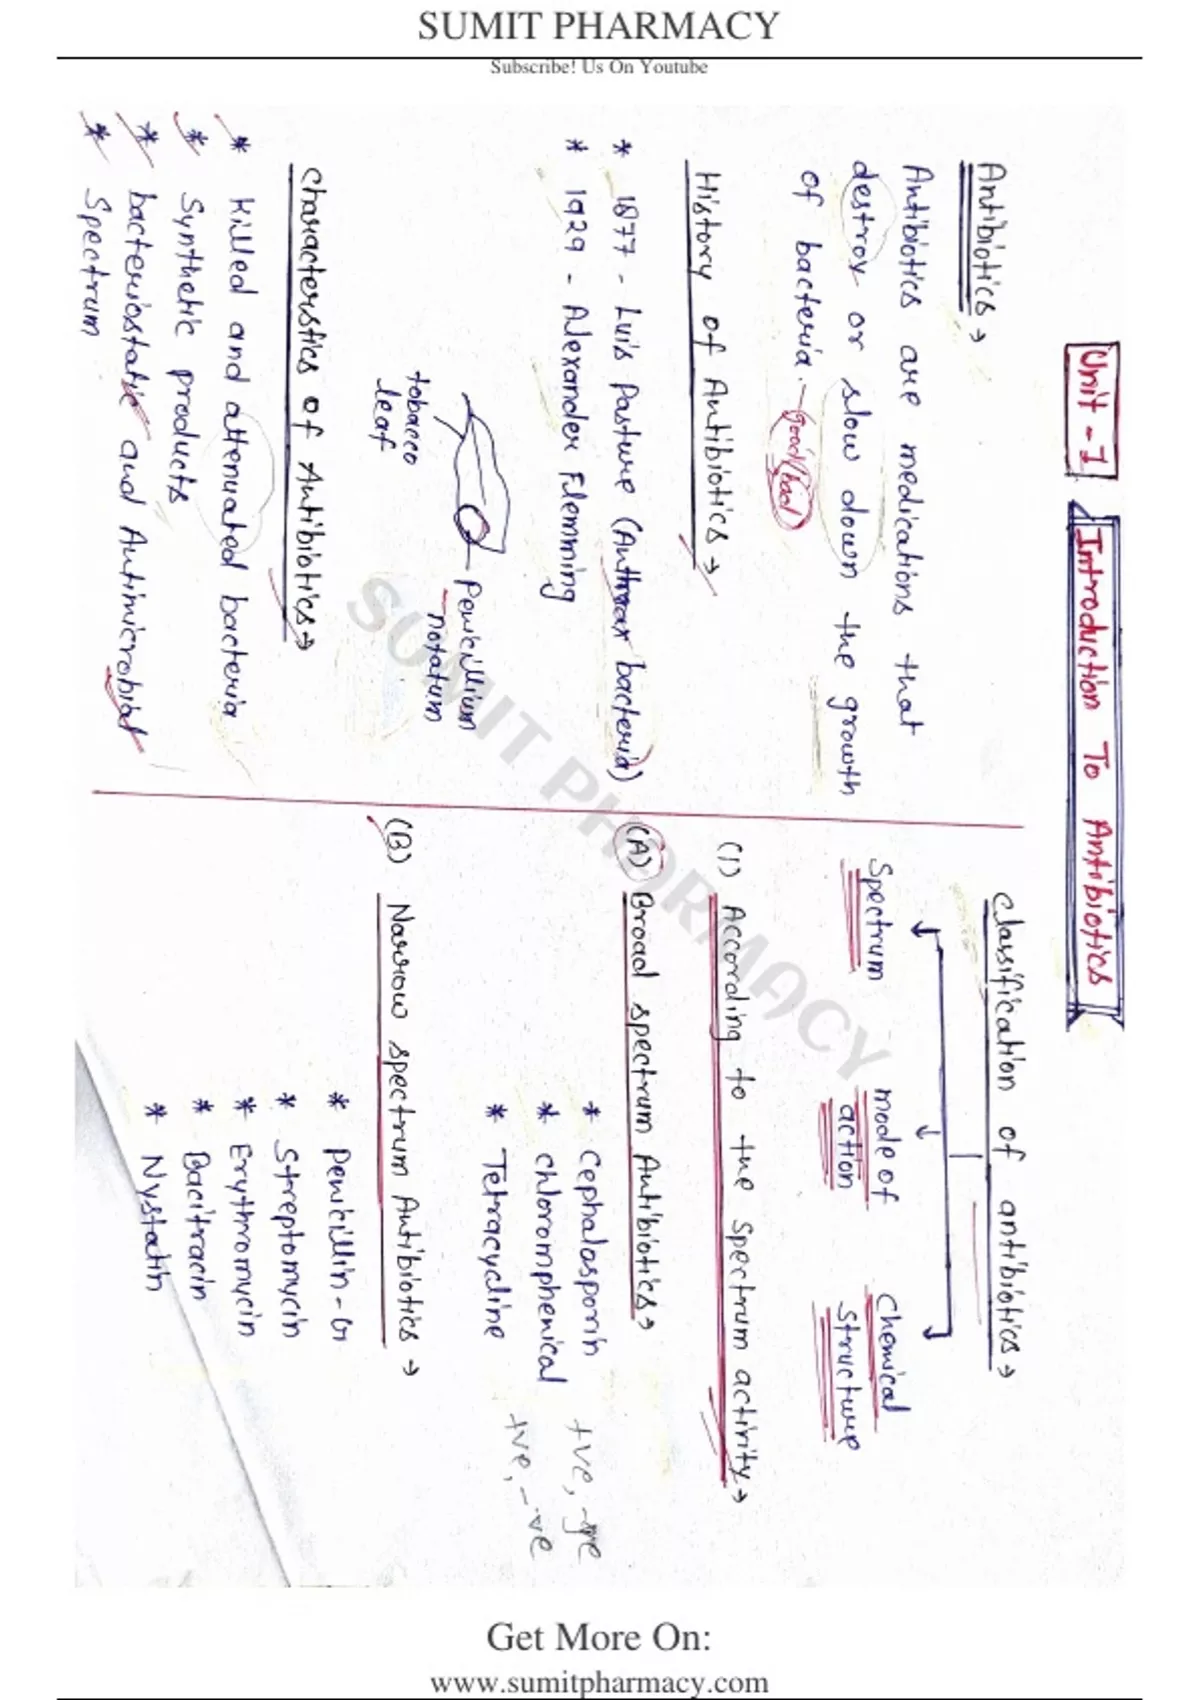 SUMIT PHARMACY
Subscribe! Us On Youtube
Unit - 1 Introduction To Antibiotics
Antibiotics →
Antibiotics are medications that
destroy or slow down the growth
of bacteria - good/bad
History of Antibiotics →
* 1877 - Luis Pasture (Anthrax bacteria)
* 1929 - Alexander Flemming
tobacco
leaf
Penicillium
notatum
Characterstics of Antibiotics →
* Killed and attenuated bacteria
* Synthetic products
* bacteriostatic and Antimicrobial
* Spectrum
Classification of antibiotics →
Spectrum
mode of
action
Chemical
Structure
(1) According to the Spectrum activity →
(A) Broad spectrum Antibiotics →
* Cephalosporin +ve, -ve
* chloromphenical +ve, -ve
* Tetracycline
(B) Narrow spectrum Antibiotics →
* Penicillin - G
* Streptomycin
* Erythromycin
* Bacitracin
* Nystatin
SUMIT PHARMACY
Get More On:
www.sumitpharmacy.com